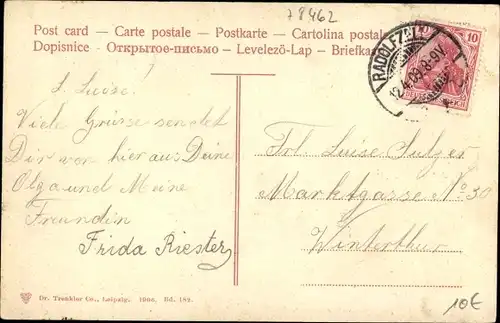 78462
Post card – Carte postale – Postkarte – Cartolina postal
Dopisnice – Открытое-письмо – Levelező-Lap – Briefka
RADOLFZELL
2.4.09. 8-9V.
10 10
DEUTSCHES REICH
L. Luise!
Viele Grüsse sendet
Dir von hier aus Deine
Olga und Meine
Freundin
Frida Riester
Frl. Luise Sulzer
Marktgasse No 30
Winterthur
Dr. Trenkler Co., Leipzig. 1906. Bd. 182.
10€